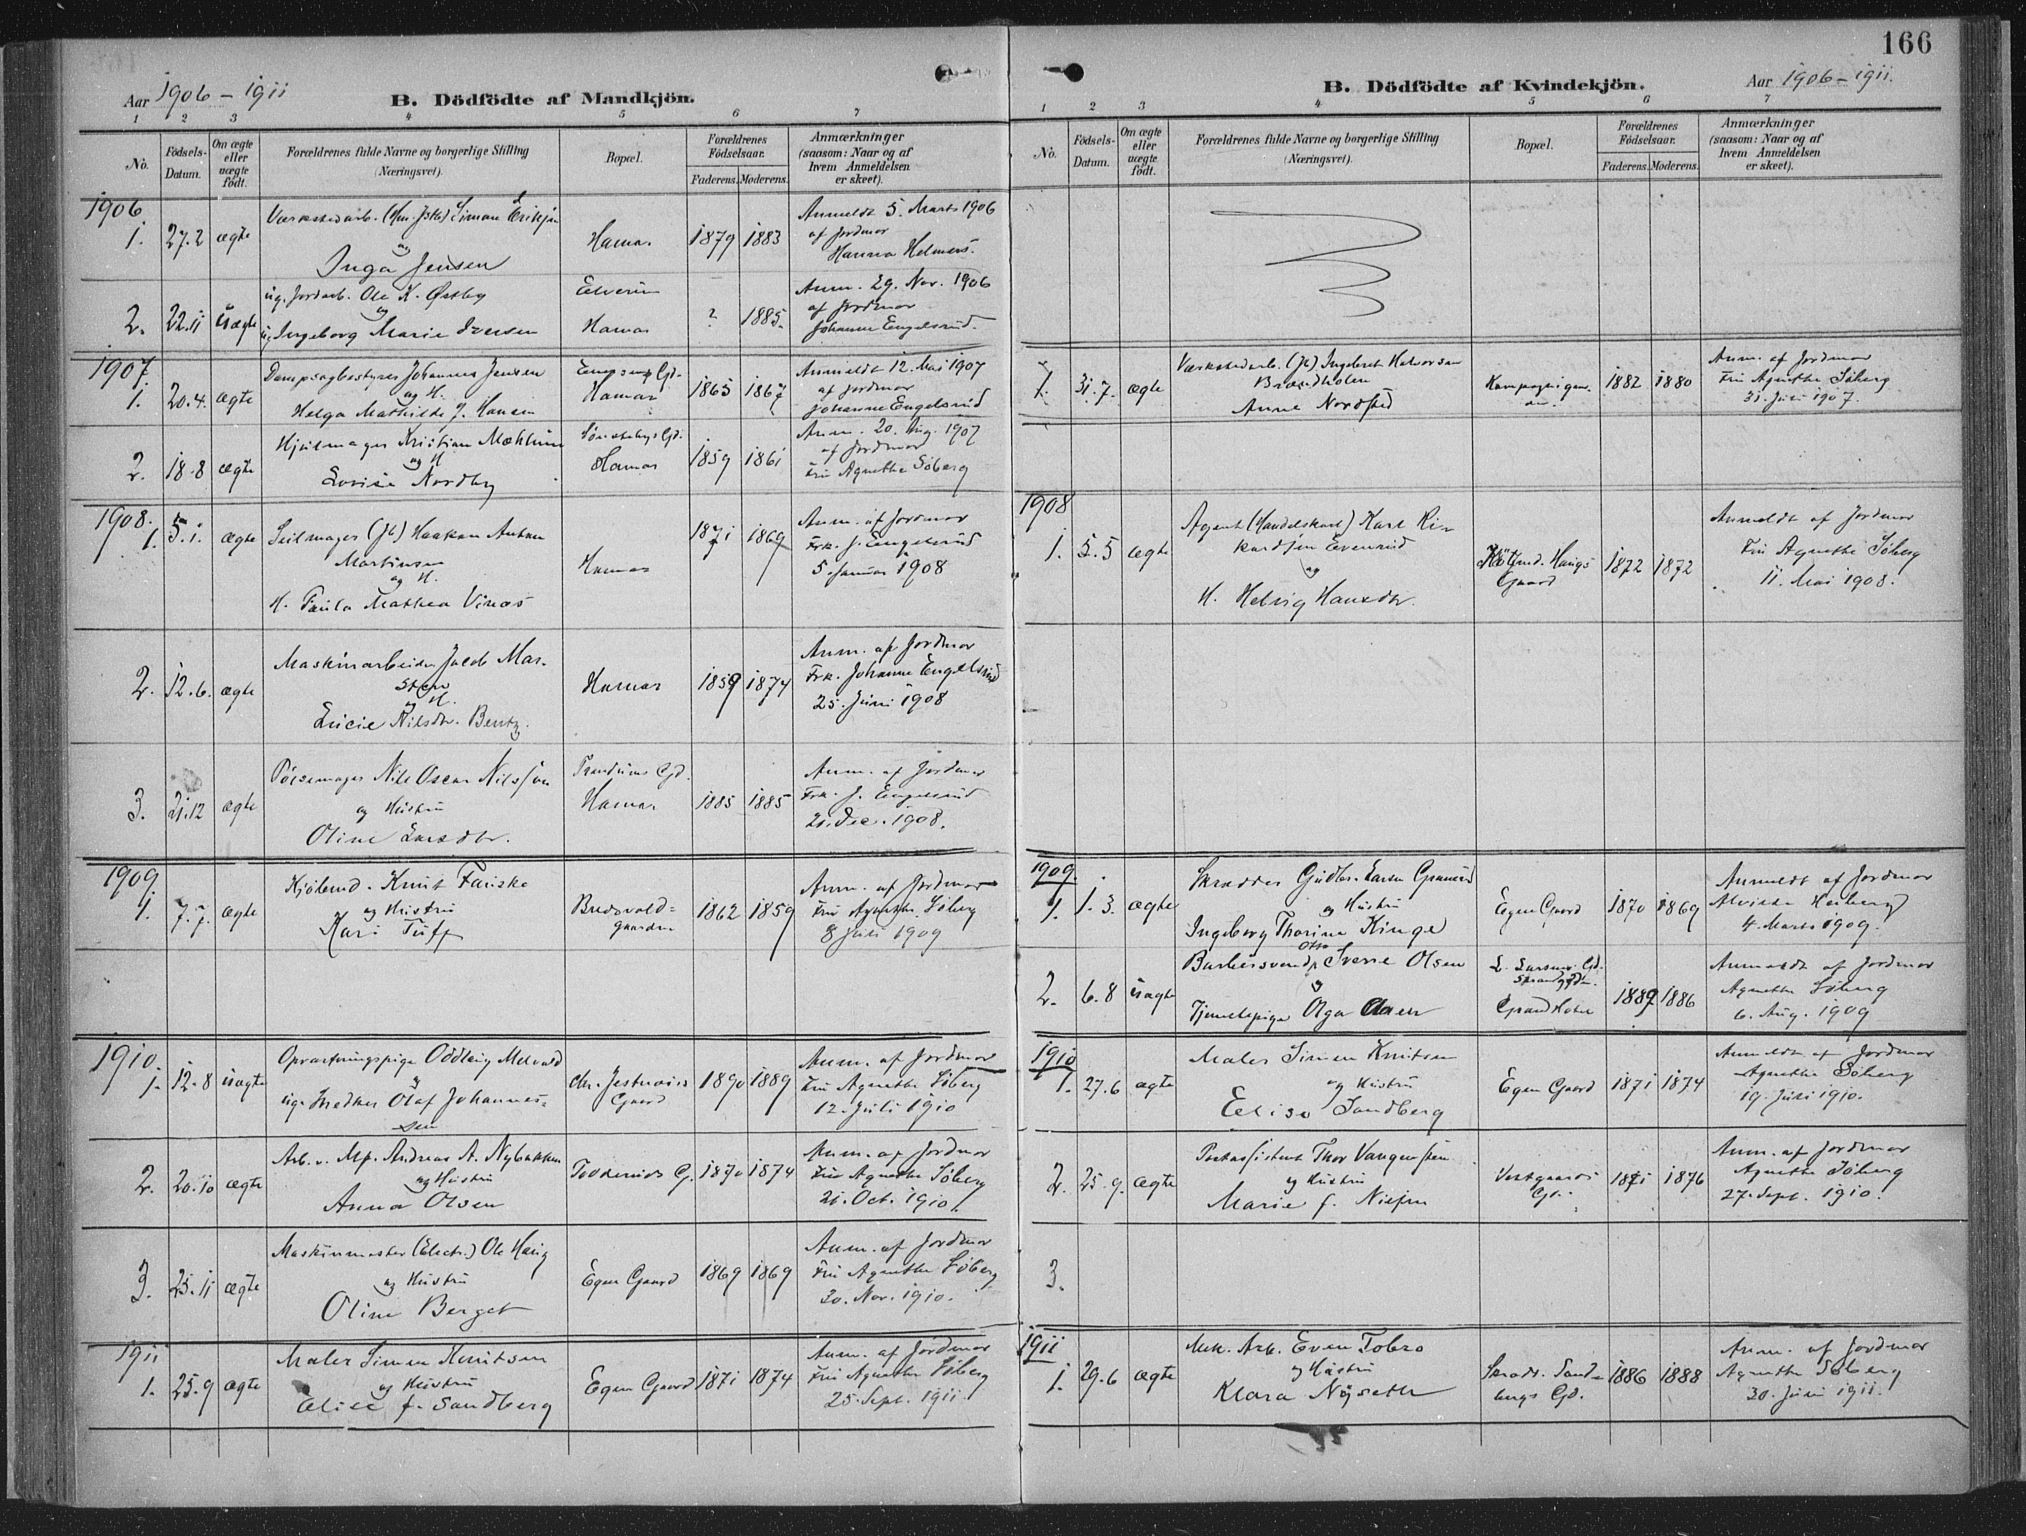 166
Aar 1906 - 1911
B. Dödfödte af Mandkjön.
1 2 3 4 5 6 7
No.
Födsels-Datum.
Om ægte eller uægte födt.
Forældrenes fulde Navne og borgerlige Stilling (Næringsvei).
Bopæl.
Forældrenes Födselsaar.
Faderens. Moderens.
Anmærkninger (saasom: Naar og af hvem Anmeldelsen er skeet).
1906
1. 27.2 ægte
og
Inga Jensen
Hamar 1879 1883
Anmeldt 5. Marts 1906
af Jordmor
Hanna Helmers.
2. 22.11 uægte
ug. Jordarb. Ole K. Østby
og
ug. Ingeborg Marie Iversen
Elverum
Hamar
? 1885.
Anm. 29. Nov. 1906
af Jordmor
Johanne Engelsrud.
1907
1. 20.4. ægte
Dampsagbestyrer Johannes Jensen
og H.
Helga Mathilde J. Hansen
Hamar 1865 1867
Anmeldt 12. Mai 1907
af Jordmor
Johanne Engelsrud
2. 18.8 ægte
Hjulmager Kristian Mæhlum
og H
Lovise Nordby
Hamar 1859 1861
Anm. 20. Aug. 1907
af Jordmor
Fru Agnethe Söberg
1908.
1. 5.1. ægte
Seilmager (Jb) Haakon Anton
Martinsen
og H.
H. Paula Mathea
Hamar 1871 1869
Anm. af Jordmor
Frk. J. Engelsrud
5. Januar 1908
2. 12.6. ægte
Maskinarbeider Jacob Mar-
sten
og H.
Lucie Nilsdtr. Bentz.
Hamar 1859 1874
Anm. af Jordmor
Frk. Johanne Engelsrud
25. Juni 1908
3. 21.12 ægte
Pölsemager Nils Oscar Nilsson
og Hustru
Oline Larsdtr.
Hamar 1885 1885
Anm. af Jordmor
Frk. J. Engelsrud
21. Dec. 1908.
1909.
1. 7.7. ægte
Knut Fauske
og Hustru
Kari Tuff
Bredsvold-
gaarden
1862 1859
Anm. af Jordmor
Fru Agnethe Söberg
8 Juli 1909
1910.
1. 12.8 uægte
Opvartningspige Oddlaug Melvold
og
Olaf Johannes-
sen
Gaard
1890 1889
Anm. af Jordmor
Fru Agnethe Söberg
12. Juli 1910
2. 20.10 ægte
Arb. v. Mp. Andreas A. Nybakken
og Hustru
Anna Olsen
Todderuds G. 1870 1874
Anm. af Jordmor
Fru Agnethe Söberg
21. Oct. 1910.
3. 25.11 ægte
Maskinmester (Electr.) Ole Haug
og Hustru
Oline Berget
Egen Gaard 1869 1869
Anm. af Jordmor
Fru Agnethe Söberg
30. Nov. 1910.
1911
1. 25.9 ægte
Maler Simen Knutsen
og Hustru
Elise f. Sandberg
Egen Gaard 1871 1874
Anm. af Jordmor
Fru Agnethe Söberg
25. Sept. 1911
B. Dödfödte af Kvindekjön.
Aar 1906 - 1911.
1 2 3 4 5 6 7
No.
Födsels-Datum.
Om ægte eller uægte födt.
Forældrenes fulde Navne og borgerlige Stilling (Næringsvei).
Bopæl.
Forældrenes Födselsaar.
Faderens. Moderens.
Anmærkninger (saasom: Naar og af hvem Anmeldelsen er skeet).
1. 31.7. ægte
Værkstedarb. (Jb) Ingebret Halvorsen
Brædholen
Anne Nordsted
1882 1880
Anm. af Jordmor
Fru Agnethe Söberg
31. Juli 1907.
1908
1. 5.5 ægte
Agent (Handelskont) Karl Ri-
kardsen Evensrud
og
H. Helvig Hansdtr.
Haugs
Gaard
1872 1872
Anmeldt af Jordmor
Fru Agnethe Söberg
11. Mai 1908.
1909.
1. 1.3. ægte
Skrædder Gudbr. Larsen Granerud
og Hustru
Ingeborg Thorine Kinge
Egen Gaard 1870 1869
Anmeldt af Jordmor
Alvilde Heiberg
4. Marts 1909.
2. 6.8 uægte
Barbersvend Otto Sverre Olsen
og
Tjenestepige Olga Olsen
L. Larsens Gd.
Grand Hotel
1889 1886
Anmeldt af Jordmor
Agnethe Söberg
6. Aug. 1909
1910
1. 27.6 ægte
Maler Simen Knutsen
og Hustru
Elise Sandberg
Egen Gaard 1871 1874
Anmeldt af Jordmor
Agnethe Söberg
19. Juli 1910.
2. 25.9. ægte
Postassistent Thor Vangensten
og Hustru
Marie f. Nielsen
Vestgaards
Gd.
1871 1876
Anm. af Jordmor
Agnethe Söberg
27. Sept. 1910.
3.
1911
1. 29.6 ægte
Mek. Arb. Even Tobro
og Hustru
Klara Nøseth
Skrædd. Sand-
bergs Gd.
1886 1888
Anm. af Jordmor
Agnethe Söberg
30. Juni 1911.